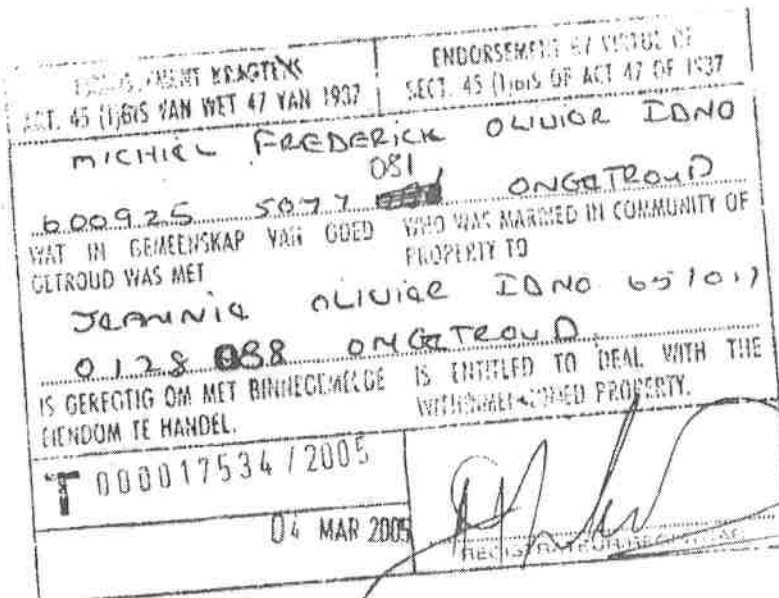 KRAGTENS
ENDORSEMENT BY VIRTUE OF
ART. 45 (1)BIS VAN WET 47 VAN 1937
SECT. 45 (1)BIS OF ACT 47 OF 1937
MICHIEL FREDERICK OLIVIER IDNO
081
600925 5077 ONGETROUD
WAT IN GEMEENSKAP VAN GOED
GETROUD WAS MET
WHO WAS MARRIED IN COMMUNITY OF
PROPERTY TO
OLIVIER IDNO 651017
0128 088 ONGETROUD
IS GEREGTIG OM MET BINNEGEMELDE
EIENDOM TE HANDEL.
IS ENTITLED TO DEAL WITH THE
WITHINMENTIONED PROPERTY.
T 000017534/2005
04 MAR 2005
REGISTRATEUR/REGISTRAR